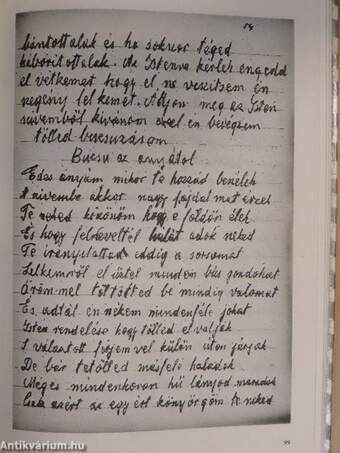 59
bántottalak és ha sokszor téged
kiboritottalak. Az Istenre kérlek engedd
el vétkemet hogy el ne veszitsem én
szegény lelkemet. Adjon meg az Isten
szivemből kivánom ezel én bevégzem
tölled bucsuzásom
Bucsu az anyátol
Édes anyám mikor te hozzád beszélek
A szivembe akkor nagy fájdalmat érzek
Te neked köszönöm hogy a földön élek
És hogy felneveltél hálát adok neked
Te irányitottad eddig a sorsomat
Lelkemröl el üztél minden bús gondokat
Örömmel töltötted be mindig valómat
És adtál én nekem mindenféle jókat
Isten rendelése hogy tölled elváljak
S választott férjemvel külön úton járjak
De bár tetölled másfelé haladok
Mégis mindenkoron hű lányod maradok
azért az egy ért könyörgöm te neked
99
Antikvárium.hu